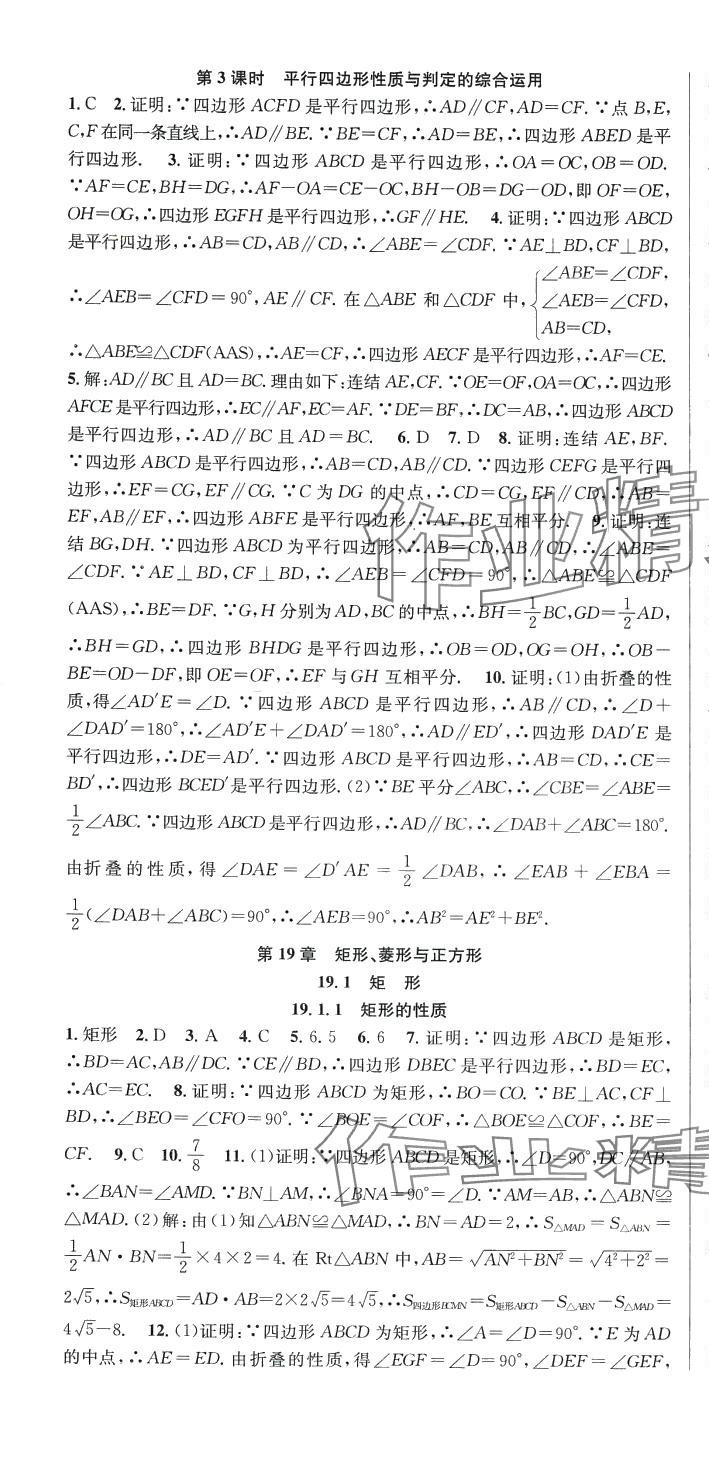 第3课时　平行四边形性质与判定的综合运用
1. C　2. 证明:∵四边形 ACFD 是平行四边形,∴AD∥CF,AD=CF. ∵点 B,E,
C,F 在同一条直线上,∴AD∥BE. ∵BE=CF,∴AD=BE,∴四边形 ABED 是平
行四边形.　3. 证明:∵四边形 ABCD 是平行四边形,∴OA=OC,OB=OD.
∵AF=CE,BH=DG,∴AF−OA=CE−OC,BH−OB=DG−OD,即 OF=OE,
OH=OG,∴四边形 EGFH 是平行四边形,∴GF∥HE.　4. 证明:∵四边形 ABCD
是平行四边形,∴AB=CD,AB∥CD,∴∠ABE=∠CDF. ∵AE⊥BD,CF⊥BD,
∴∠AEB=∠CFD=90°,AE∥CF. 在△ABE 和△CDF 中,{∠ABE=∠CDF,
∠AEB=∠CFD,
AB=CD,
∴△ABE≌△CDF(AAS),∴AE=CF,∴四边形 AECF 是平行四边形,∴AF=CE.
5. 解:AD∥BC 且 AD=BC. 理由如下:连结 AE,CF. ∵OE=OF,OA=OC,∴四边形
AFCE 是平行四边形,∴EC∥AF,EC=AF. ∵DE=BF,∴DC=AB,∴四边形 ABCD
是平行四边形,∴AD∥BC 且 AD=BC.　6. D　7. D　8. 证明:连结 AE,BF.
∵四边形 ABCD 是平行四边形,∴AB=CD,AB∥CD. ∵四边形 CEFG 是平行四
边形,∴EF=CG,EF∥CG. ∵C 为 DG 的中点,∴CD=CG,EF∥CD,∴AB=
EF,AB∥EF,∴四边形 ABFE 是平行四边形,∴AF,BE 互相平分.　9. 证明:连
结 BG,DH. ∵四边形 ABCD 为平行四边形,∴AB=CD,AB∥CD,∴∠ABE=
∠CDF. ∵AE⊥BD,CF⊥BD,∴∠AEB=∠CFD=90°,∴△ABE≌△CDF
(AAS),∴BE=DF. ∵G,H 分别为 AD,BC 的中点,∴BH=1/2BC,GD=1/2AD,
∴BH=GD,∴四边形 BHDG 是平行四边形,∴OB=OD,OG=OH,∴OB−
BE=OD−DF,即 OE=OF,∴EF 与 GH 互相平分.　10. 证明:(1)由折叠的性
质,得∠AD′E=∠D. ∵四边形 ABCD 是平行四边形,∴AB∥CD,∴∠D+
∠DAD′=180°,∴∠AD′E+∠DAD′=180°,∴AD∥ED′,∴四边形 DAD′E 是
平行四边形,∴DE=AD′. ∵四边形 ABCD 是平行四边形,∴AB=CD,∴CE=
BD′,∴四边形 BCED′是平行四边形. (2)∵BE 平分∠ABC,∴∠CBE=∠ABE=
1/2∠ABC. ∵四边形 ABCD 是平行四边形,∴AD∥BC,∴∠DAB+∠ABC=180°.
由折叠的性质,得∠DAE=∠D′AE=1/2∠DAB,∴∠EAB+∠EBA=
1/2(∠DAB+∠ABC)=90°,∴∠AEB=90°,∴AB²=AE²+BE².
第19章　矩形、菱形与正方形
19.1　矩　形
19.1.1　矩形的性质
1. 矩形　2. D　3. A　4. C　5. 6.5　6. 6　7. 证明:∵四边形 ABCD 是矩形,
∴BD=AC,AB∥DC. ∵CE∥BD,∴四边形 DBEC 是平行四边形,∴BD=EC,
∴AC=EC.　8. 证明:∵四边形 ABCD 为矩形,∴BO=CO. ∵BE⊥AC,CF⊥
BD,∴∠BEO=∠CFO=90°. ∵∠BOE=∠COF,∴△BOE≌△COF,∴BE=
CF.　9. C　10. 7/8　11. (1)证明:∵四边形 ABCD 是矩形,∴∠D=90°,DC∥AB,
∴∠BAN=∠AMD. ∵BN⊥AM,∴∠BNA=90°=∠D. ∵AM=AB,∴△ABN≌
△MAD. (2)解:由(1)知△ABN≌△MAD,∴BN=AD=2,∴S△MAD=S△ABN=
1/2AN·BN=1/2×4×2=4. 在 Rt△ABN 中,AB=√(AN²+BN²)=√(4²+2²)=
2√5,∴S矩形ABCD=AD·AB=2×2√5=4√5,∴S四边形BCMN=S矩形ABCD−S△ABN−S△MAD=
4√5−8.　12. (1)证明:∵四边形 ABCD 为矩形,∴∠A=∠D=90°. ∵E 为 AD
的中点,∴AE=ED. 由折叠的性质,得∠EGF=∠D=90°,∠DEF=∠GEF,
作业精
作业精